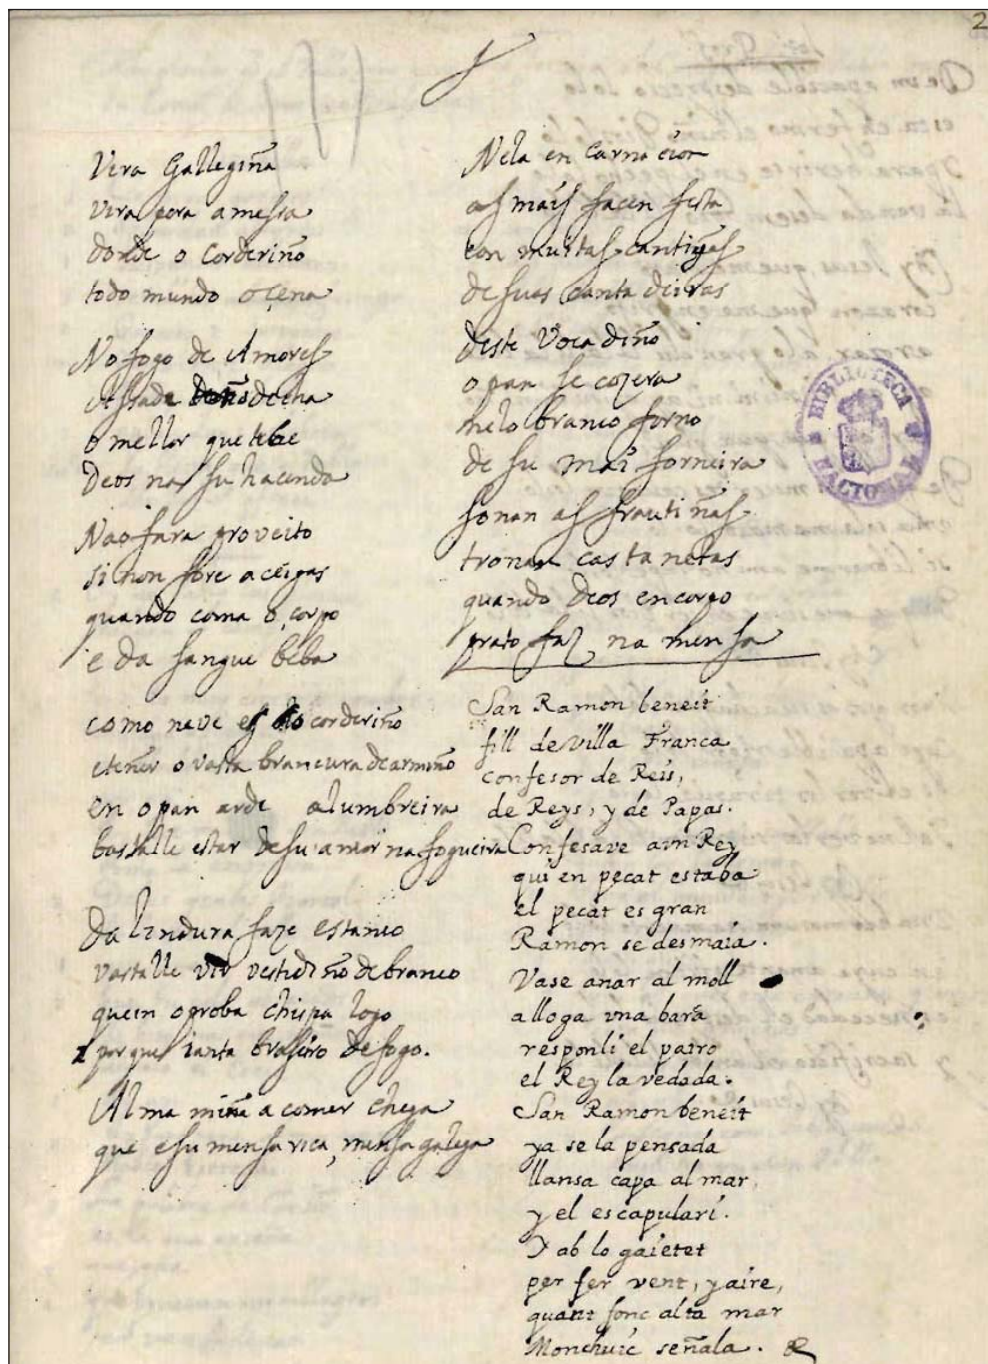 2
Vira Gallegiña
vira pora a messa
donde o Corderiño
todo mundo o çena
No fogo de Amores
o mellor que tebe
Deos nas su hacenda
Nao fara proveito
si non fore a ceigas
quando coma o corpo
e da sangue beba
como neve es o corderiño
brancura de armiño
en o pan arde alumbreira
bastalle estar de su amor na fogueira
Da lindura faze estanco
vastalle vir vestidiño de branco
quein o proba chispa logo
porque ianta brasiiro de fogo.
Alma miña a comer chega
que e su mensa rica, mensa galega
Nela encarnacion
as mais facen festa
con muitas cantigas
de suas cantadeiras
deste vocadiño
o pan se cozera
nelo branco forno
de su mai forneira
sonan as frautiñas
tronan castanetas
quando Deos en corpo
prato faz na mensa
San Ramon beneit
fill de villa Franca
confesor de Reis,
de Reys, y de Papas.
Confesave a vn Rey
qui en pecat estaba
el pecat es gran
Ramon se desmaia.
Vase anar al moll
alloga vna bará
responli el patro
el Rey la vedada.
San Ramon beneit
ya se la pensada
llansa capa al mar
y el escapulari.
Y ab lo gaietet
per fer vent, y aire,
quant fonc alta mar
Monchuic señala.
BIBLIOTECA NACIONAL